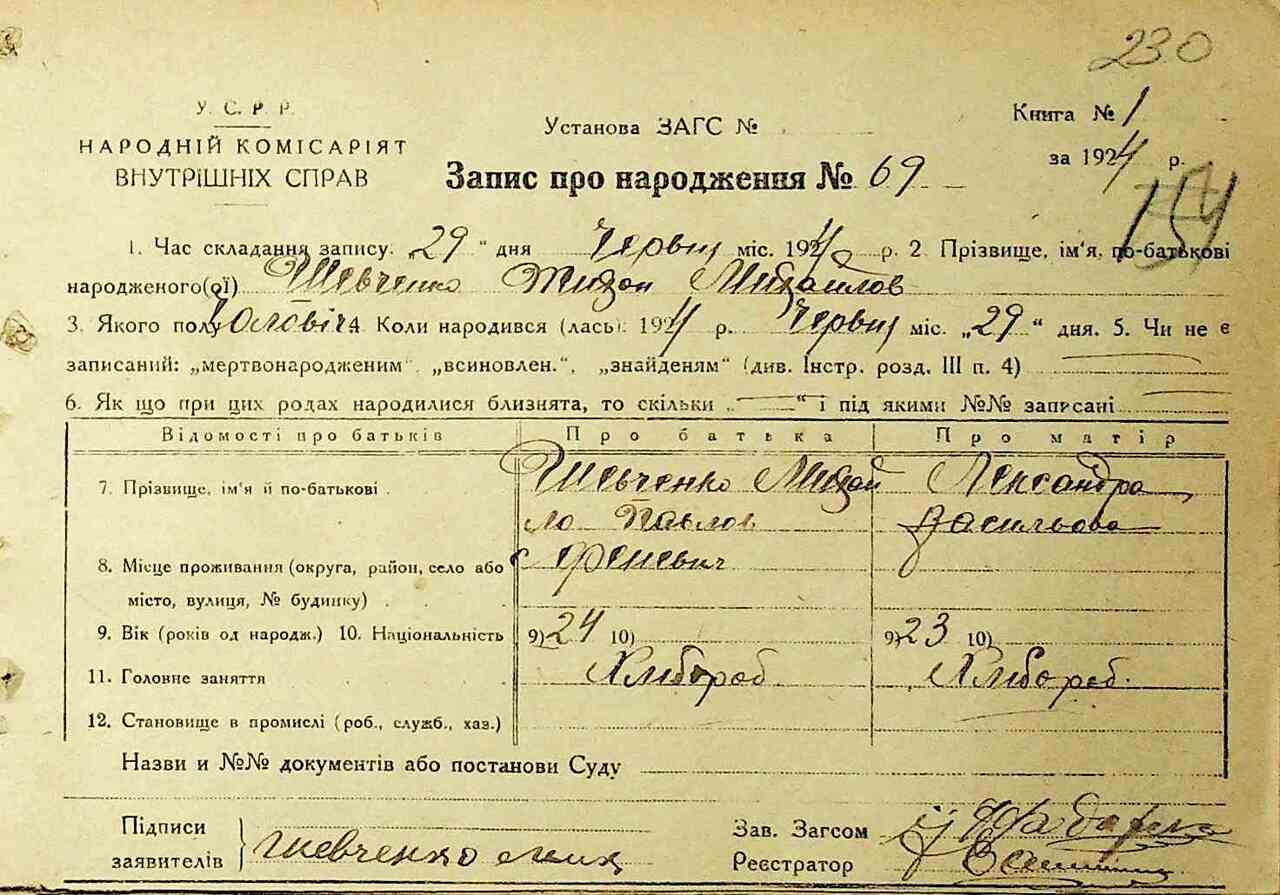 230
У. С. Р. Р.
НАРОДНІЙ КОМІСАРІЯТ
ВНУТРІШНІХ СПРАВ
Установа ЗАГС №
Книга № 1
за 1924 р.
Запис про народження № 69
154
1. Час складання запису: 29 " дня Червня міс. 1924 р. 2 Прізвище, ім'я, по-батькові
народженого(ої) Шевченко Михайлов
3. Якого полу Чоловіч 4. Коли народився (лась): 1924 р. Червня міс. „29 " дня. 5. Чи не є
записаний: „мертвонародженим", „всиновлен.", „знайденям" (див. Інстр. розд. III п. 4)
6. Як що при цих родах народилися близнята, то скільки „ " і під якими №№ записані
Відомості про батьків Про батька Про матір
7. Прізвище, ім'я й по-батькові Шевченко Михай Лександра
ло Павлов Васильова
8. Місце проживання (округа, район, село або
місто, вулиця, № будинку)
9. Вік (років од народж.) 10. Національність 9) 24 10) 9) 23 10)
11. Головне заняття Хлибороб Хлибороб.
12. Становище в промислі (роб., служб., хаз.)
Назви и №№ документів або постанови Суду
Підписи
заявителів Шевченко
Зав. Загсом
Реєстратор